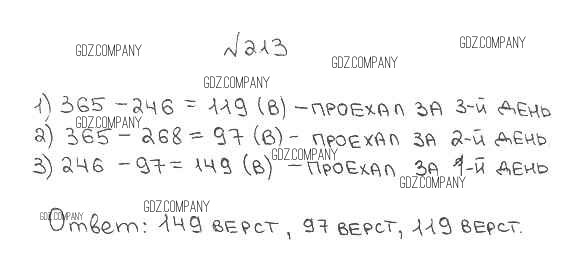 №213
GDZ.COMPANY
GDZ.COMPANY
GDZ.COMPANY
GDZ.COMPANY
1) 365 - 246 = 119 (В) - ПРОЕХАЛ ЗА 3-Й ДЕНЬ
GDZ.COMPANY
2) 365 - 268 = 97 (В) - ПРОЕХАЛ ЗА 2-Й ДЕНЬ
GDZ.COMPANY
3) 246 - 97 = 149 (В) - ПРОЕХАЛ ЗА 1-Й ДЕНЬ
GDZ.COMPANY
GDZ.COMPANY
GDZ.COMPANY
Ответ: 149 ВЕРСТ, 97 ВЕРСТ, 119 ВЕРСТ.